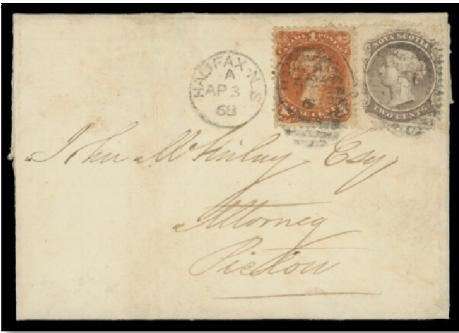 HALIFAX·N.S
A
AP 3
68
1
NOVA SCOTIA
TWO CENTS
John McKinlay, Esq,
Attorney
Pictou